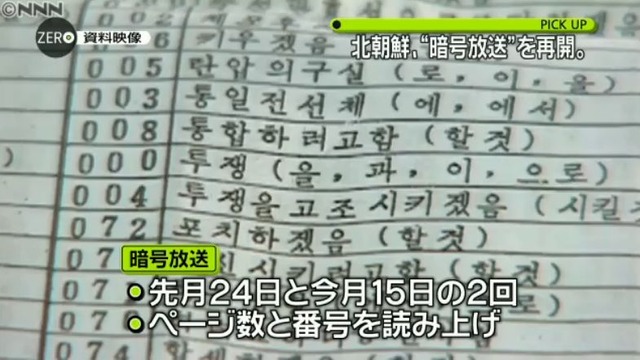 ©NNN
PICK UP
ZERO 資料映像
北朝鮮、“暗号放送”を再開。
키우겠음
005 탄압의구실 (로,이,을)
003 통일전선체 (에,에서)
008 통합하려고함 (할것)
000 투쟁 (을,과,이,으로)
004 투쟁을고조시키겠음 (시킬
072 포치하겠음 (할것)
07 시키려고함 (할것)
07
07
074
暗号放送
●先月24日と今月15日の2回
●ページ数と番号を読み上げ